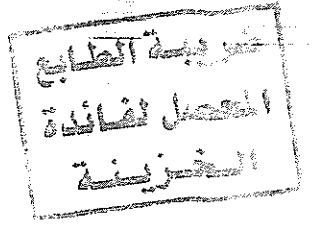 ضريبة الطابع
المحصل لفائدة
الخزينة